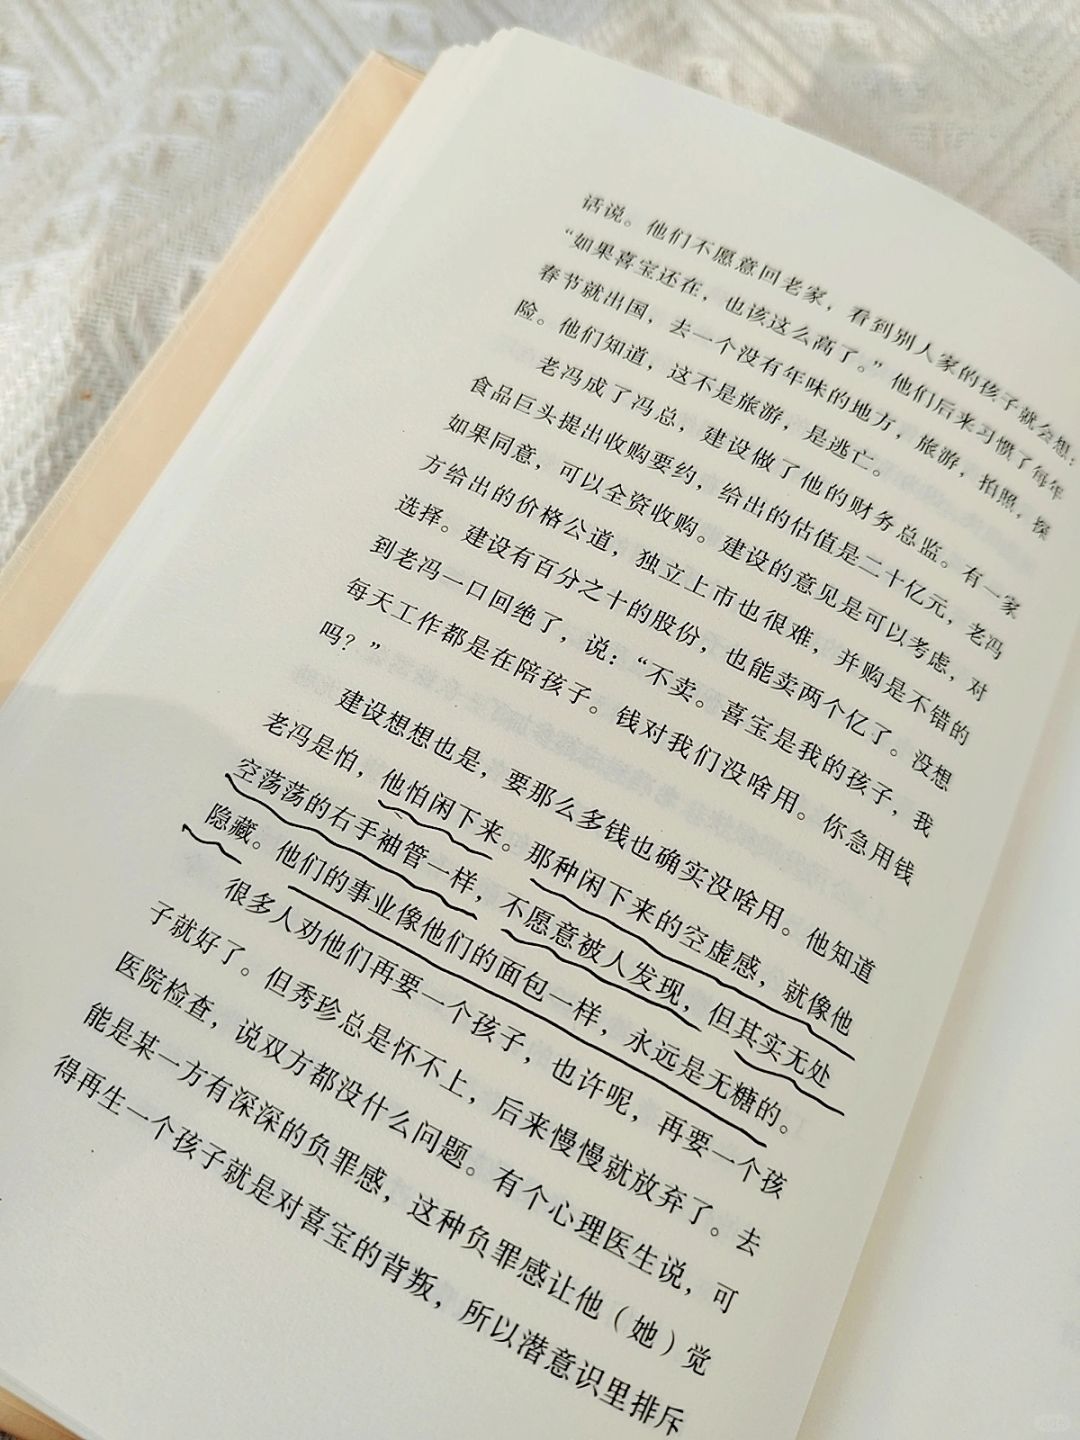 话说。他们不愿意回老家，看到别人家的孩子就会想：
“如果喜宝还在，也该这么高了。”他们后来习惯了每年
春节就出国，去一个没有年味的地方，旅游，拍照，探
险。他们知道，这不是旅游，是逃亡。
老冯成了冯总，建设做了他的财务总监。有一家
食品巨头提出收购要约，给出的估值是二十亿元，老冯
如果同意，可以全资收购。建设的意见是可以考虑，对
方给出的价格公道，独立上市也很难，并购是不错的
选择。建设有百分之十的股份，也能卖两个亿了。没想
到老冯一口回绝了，说：“不卖。喜宝是我的孩子，我
每天工作都是在陪孩子。钱对我们没啥用。你急用钱
吗？”
建设想想也是，要那么多钱也确实没啥用。他知道
老冯是怕，他怕闲下来。那种闲下来的空虚感，就像他
空荡荡的右手袖管一样，不愿意被人发现，但其实无处
隐藏。他们的事业像他们的面包一样，永远是无糖的。
很多人劝他们再要一个孩子，也许呢，再要一个孩
子就好了。但秀珍总是怀不上，后来慢慢就放弃了。去
医院检查，说双方都没什么问题。有个心理医生说，可
能是某一方有深深的负罪感，这种负罪感让他（她）觉
得再生一个孩子就是对喜宝的背叛，所以潜意识里排斥